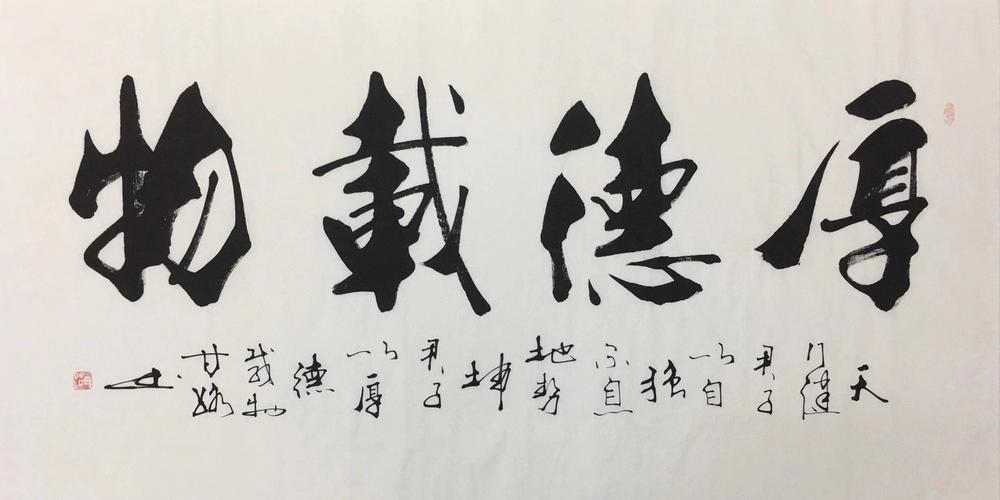 厚德載物
天
行健
君子
以自
强
不息
地势
坤
君子
以厚
德
载物
甘
书